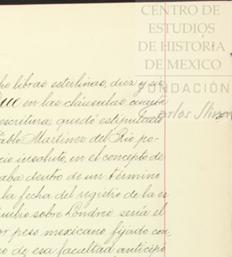 CENTRO DE
ESTUDIOS
DE HISTORIA
DE MEXICO
FUNDACIÓN
Carlos Slim
libras esterlinas, diez y
que en las cláusulas
escritura quedó estipulado
Pablo Martinez del Rio po-
insoluto, en el concepto de
dentro de un término
la fecha del registro de la es
sobre Londres sería el
por peso mexicano fijado con
de esa facultad anticipó